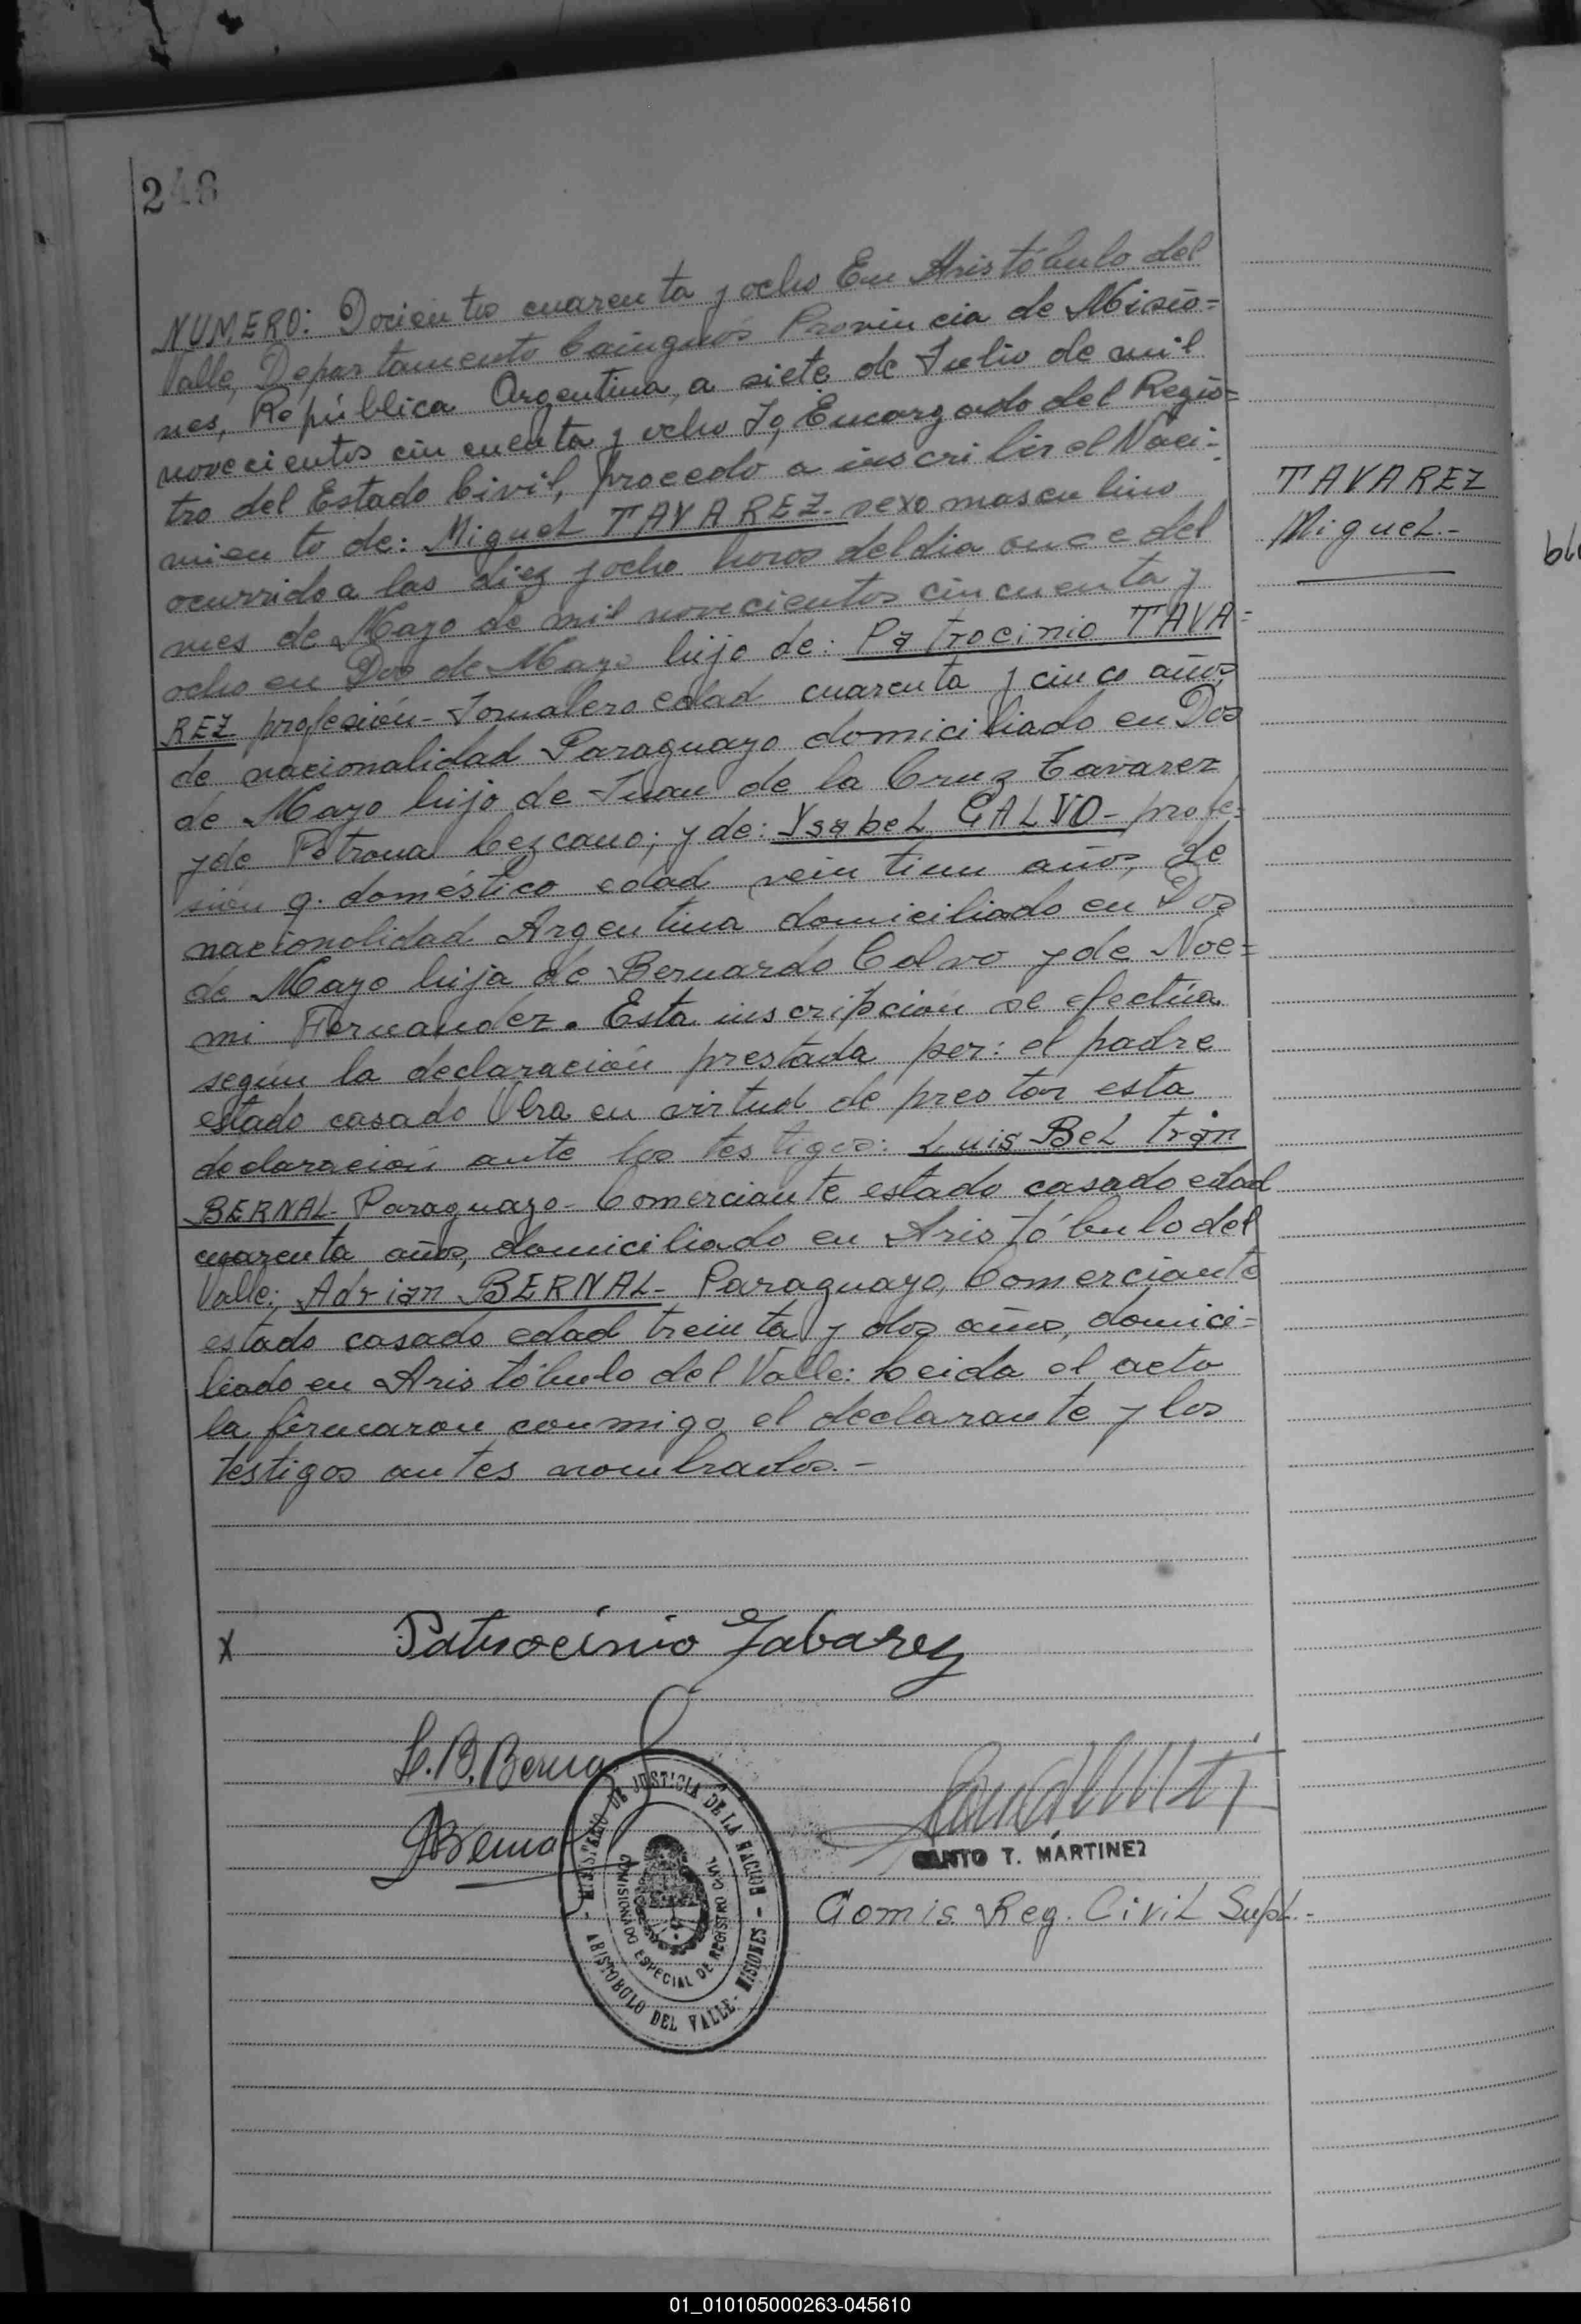 248
NUMERO: Docientos cuarenta y ocho En Aristóbulo del
Valle, Departamento Cainguás Provincia de Misio=
nes, República Argentina, a siete de Julio de mil
novecientos cincuenta y ocho Yo, Encargado del Regis=
tro del Estado Civil, procedo a inscribir el Naci-
miento de: Miguel TAVAREZ- sexo masculino
ocurrido a las diez y ocho horas del dia once del
mes de Mayo de mil novecientos cincuenta y
ocho en Dos de Mayo hijo de: Patrocinio TAVA=
REZ profesión- Jornalero edad cuarenta y cinco años
de nacionalidad Paraguayo domiciliado en Dos
de Mayo hijo de Juan de la Cruz Tavarez
y de Petrona Lezcano; y de: Ysabel CALVO- profe=
sión q. doméstico edad veintiun años, de
nacionalidad Argentina domiciliado en Dos
de Mayo hija de Bernardo Calvo y de Noe=
mi Fernandez. Esta inscripción se efectúa
según la declaración prestada por: el padre
estado casado Obra en virtud de prestar esta
declaración ante los testigos: Luis Beltrán
BERNAL- Paraguayo- Comerciante estado casado edad
cuarenta años, domiciliado en Aristóbulo del
Valle; Adrian BERNAL- Paraguayo, Comerciante
estado casado edad treinta y dos años, domici=
liado en Aristóbulo del Valle: Leida el acta
la firmaron conmigo el declarante y los
testigos antes nombrados.-
TAVAREZ
Miguel.-
X Patrocinio Tabarez
L. B. Bernal
ABernal
MINISTERIO DE JUSTICIA DE LA NACION - ARISTOBOLO DEL VALLE - MISIONES -
COMISIONADO ESPECIAL DE REGISTRO CIVIL
SANTO T. MARTINEZ
Comis. Reg. Civil Supl.-
01_010105000263-045610